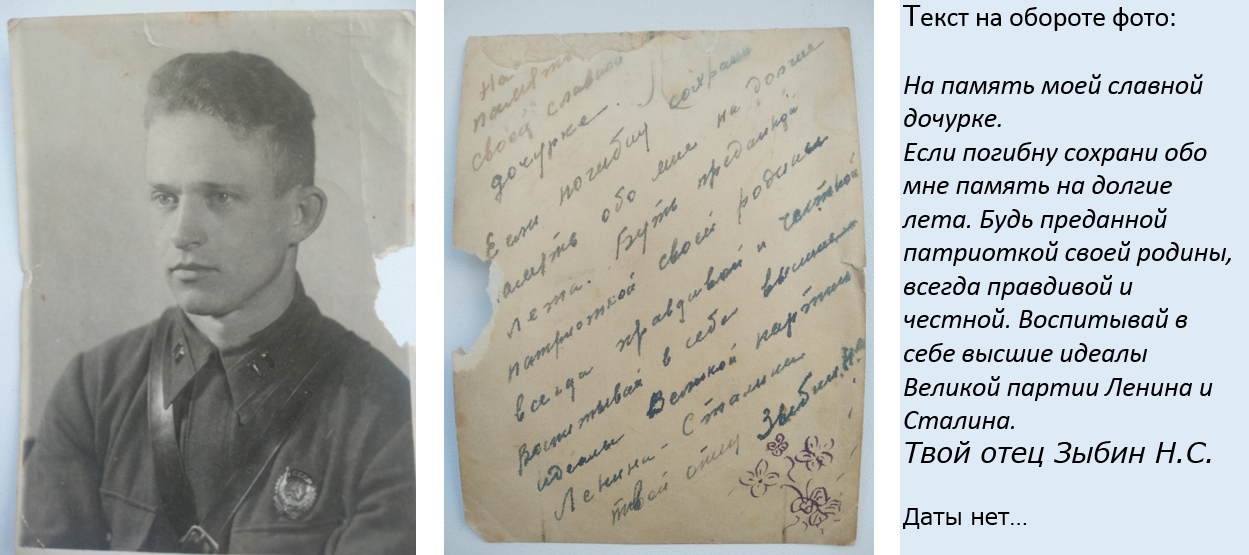 На
памят
своей славной
дочурке.
Если погибну сохрани
обо мне на долгие
лета. Будь преданной
патриоткой своей родины
всегда правдивой и честной
Воспитывай в себе высшие
идеалы Великой партии
Ленина - Сталина
твой отец Зыбин.Н.
Текст на обороте фото:
На память моей славной
дочурке.
Если погибну сохрани обо
мне память на долгие
лета. Будь преданной
патриоткой своей родины,
всегда правдивой и
честной. Воспитывай в
себе высшие идеалы
Великой партии Ленина и
Сталина.
Твой отец Зыбин Н.С.
Даты нет…